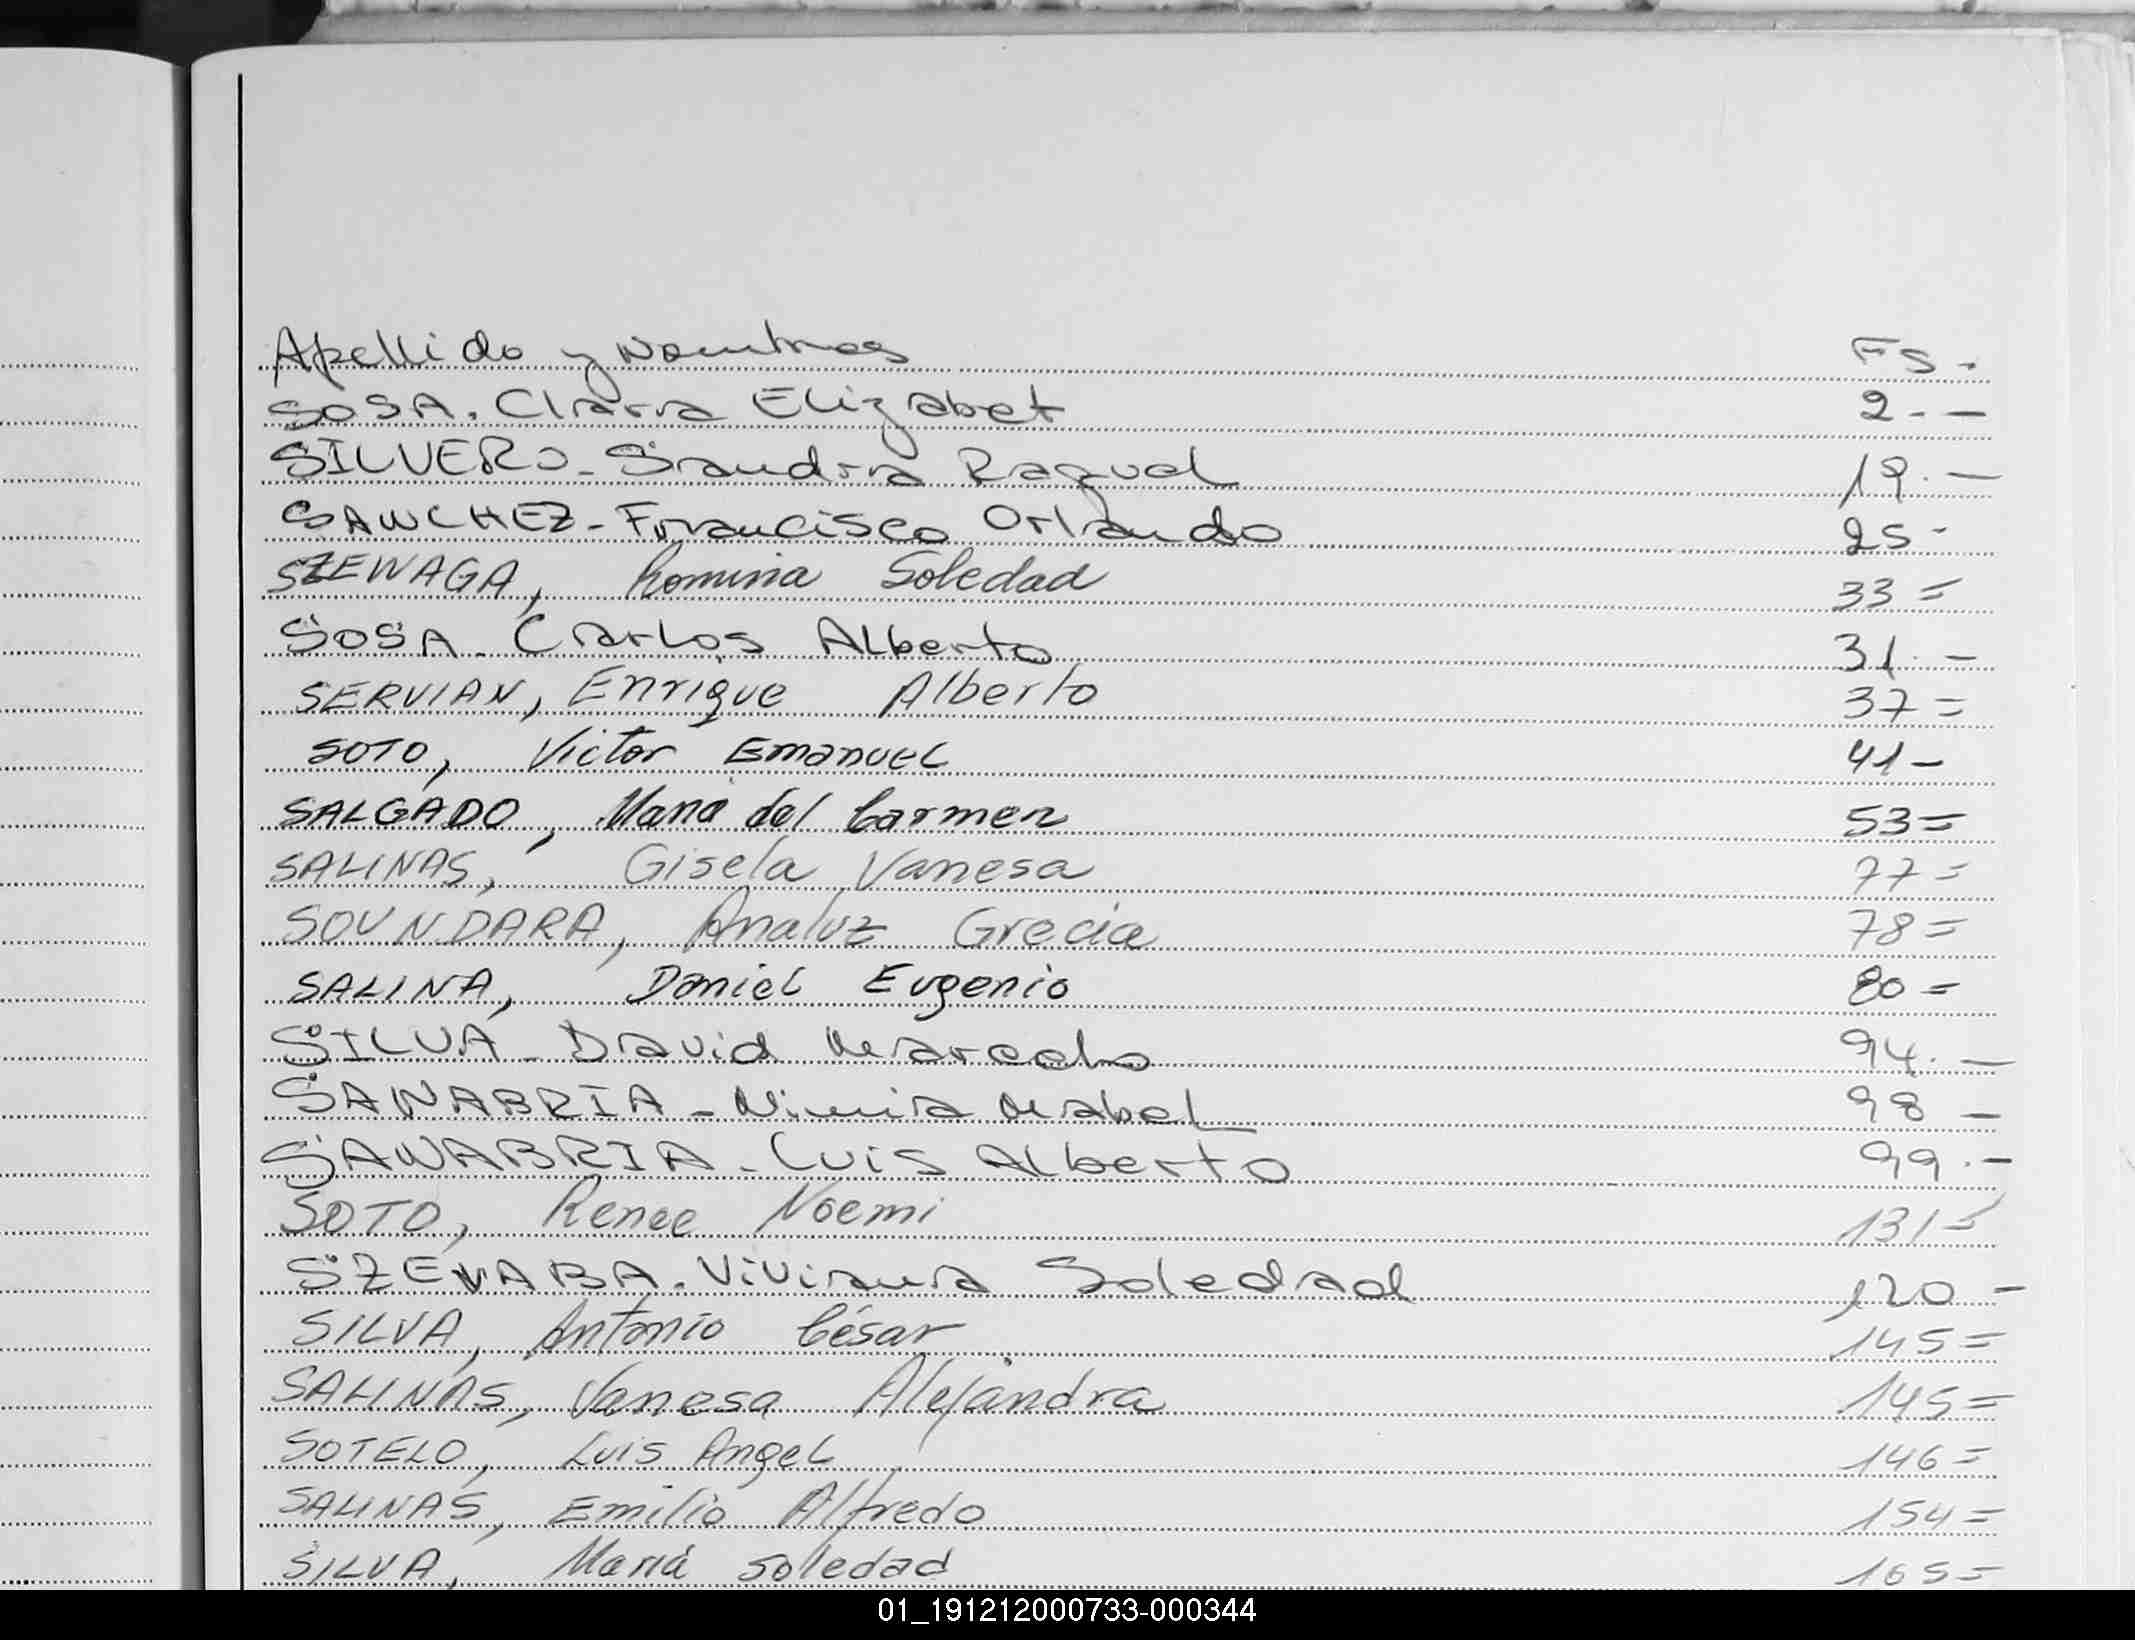 Apellido y Nombres Fs.
SOSA. Clara Elizabet 2.-
SILVERO- Sandra Raquel 19.-
SANCHEZ- Francisco Orlando 25-
SZEWAGA, Romina Soledad 33=
SOSA- Carlos Alberto 31.-
SERVIAN, Enrique Alberto 37=
SOTO, Victor Emanuel 41-
SALGADO, Maria del Carmen 53=
SALINAS, Gisela Vanesa 77=
SOUNDARA, Analuz Grecia 78=
SALINA, Daniel Eugenio 80=
SILVA- David Marcelo 94.-
SANABRIA- Nimia Mabel 98-
SANABRIA- Luis Alberto 99.-
SOTO, Renee Noemi 131=
SZEWABA. Viviana Soledad 120-
SILVA, Antonio César 145=
SALINAS, Vanesa Alejandra 145=
SOTELO, Luis Angel 146=
SALINAS, Emilio Alfredo 154=
SILVA, Maria Soledad 165=
01_191212000733-000344